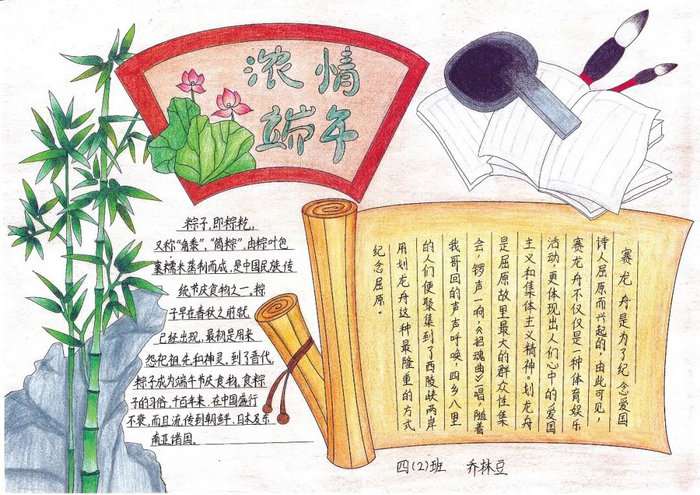 浓情
端午
粽子,即粽籺,
又称“角黍”,“筒粽”,由粽叶包
裹糯米蒸制而成,是中国民族传
统节庆食物之一。粽
子早在春秋之前就
已经出现,最初是用来
祭祀祖先和神灵,到了晋代
粽子成为端午节庆食物,食粽
子的习俗,千百年来,在中国盛行
不衰,而且流传到朝鲜、日本及东
南亚诸国。
赛龙舟是为了纪念爱国
诗人屈原而兴起的,由此可见,
赛龙舟不仅仅是一种体育娱乐
活动,更体现出人们心中的爱国
主义和集体主义精神,划龙舟
是屈原故里最大的群众性集
会,锣声一响,《招魂曲》唱,随着
我哥回的声声呼唤,四乡八里
的人们便聚集到了西陵峡两岸
用划龙舟这种最隆重的方式
纪念屈原。
四(2)班 乔林豆